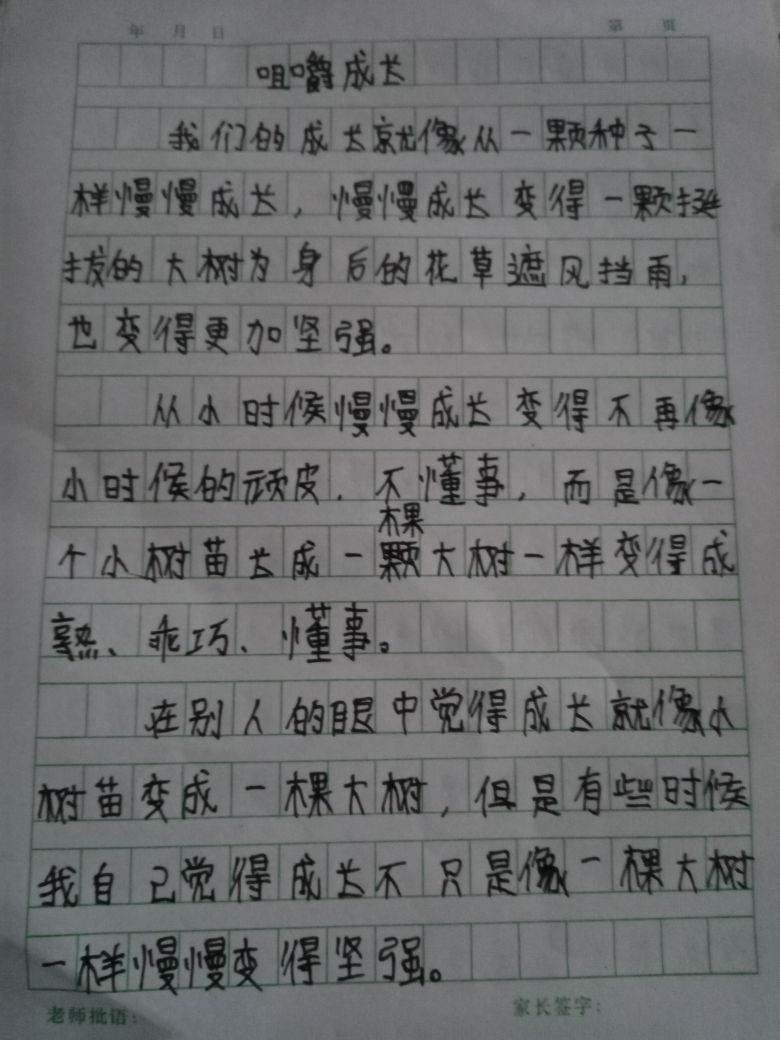 年 月 日 第 页
咀嚼成长
我们的成长就像从一颗种子一
样慢慢成长，慢慢成长变得一颗挺
拔的大树为身后的花草遮风挡雨，
也变得更加坚强。
从小时候慢慢成长变得不再像
小时候的顽皮、不懂事，而是像一
棵
个小树苗长成一颗大树一样变得成
熟、乖巧、懂事。
在别人的眼中觉得成长就像小
树苗变成一棵大树，但是有些时候
我自己觉得成长不只是像一棵大树
一样慢慢变得坚强。
老师批语： 家长签字：